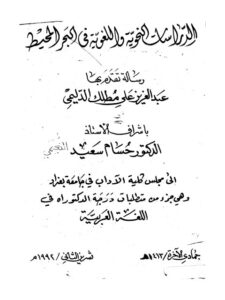 الدراسات النحوية واللغوية في البحر المحيط
رسالة تقدم بها
عبد العزيز علي مطلك الدليمي
باشراف الاستاذ
الدكتور حسام سعيد النعيمي
الى مجلس كلية الآداب في جامعة بغداد
وهي جزء من متطلبات درجة الدكتوراه في
اللغة العربية
جمادي الآخرة / ١٤١٣هـ تشرين الثاني / ١٩٩٢م